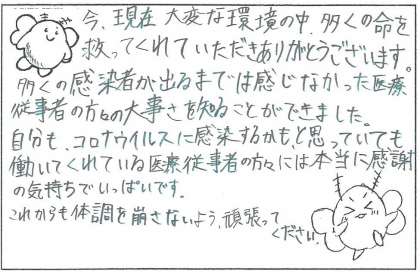 今、現在大変な環境の中、多くの命を
救ってくれていただきありがとうございます。
多くの感染者が出るまでは感じなかった医療
従事者の方々の大事さを知ることができました。
自分も、コロナウイルスに感染するかも、と思っていても
働いてくれている医療従事者の方々には本当に感謝
の気持ちでいっぱいです。
これからも体調を崩さないよう、頑張って
ください。